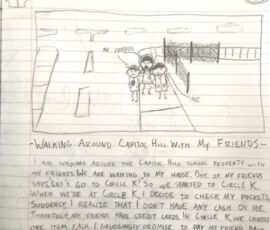 MY FRIENDS
ME
-WALKING AROUND CAPITOL HILL WITH MY FRIENDS-
I AM WALKING AROUND THE CAPITOL HILL SCHOOL PROPERTY WITH
MY FRIENDS. WE ARE WALKING TO MY HOUSE. ONE OF MY FRIENDS
SAYS, LET'S GO TO CIRCLE K! SO WE STARTED TO CIRCLE K.
WHEN WE'RE AT CIRCLE K I DECIDE TO CHECK MY POCKETS,
SUDDENLY I REALIZE THAT I DON'T HAVE ANY CASH ON ME.
THANKFULLY, MY FRIENDS HAVE CREDIT CARDS. IN CIRCLE K, WE CHOOSE
ONE ITEM EACH. I GRUDGINGLY PROMISE TO PAY MY FRIEND BACK